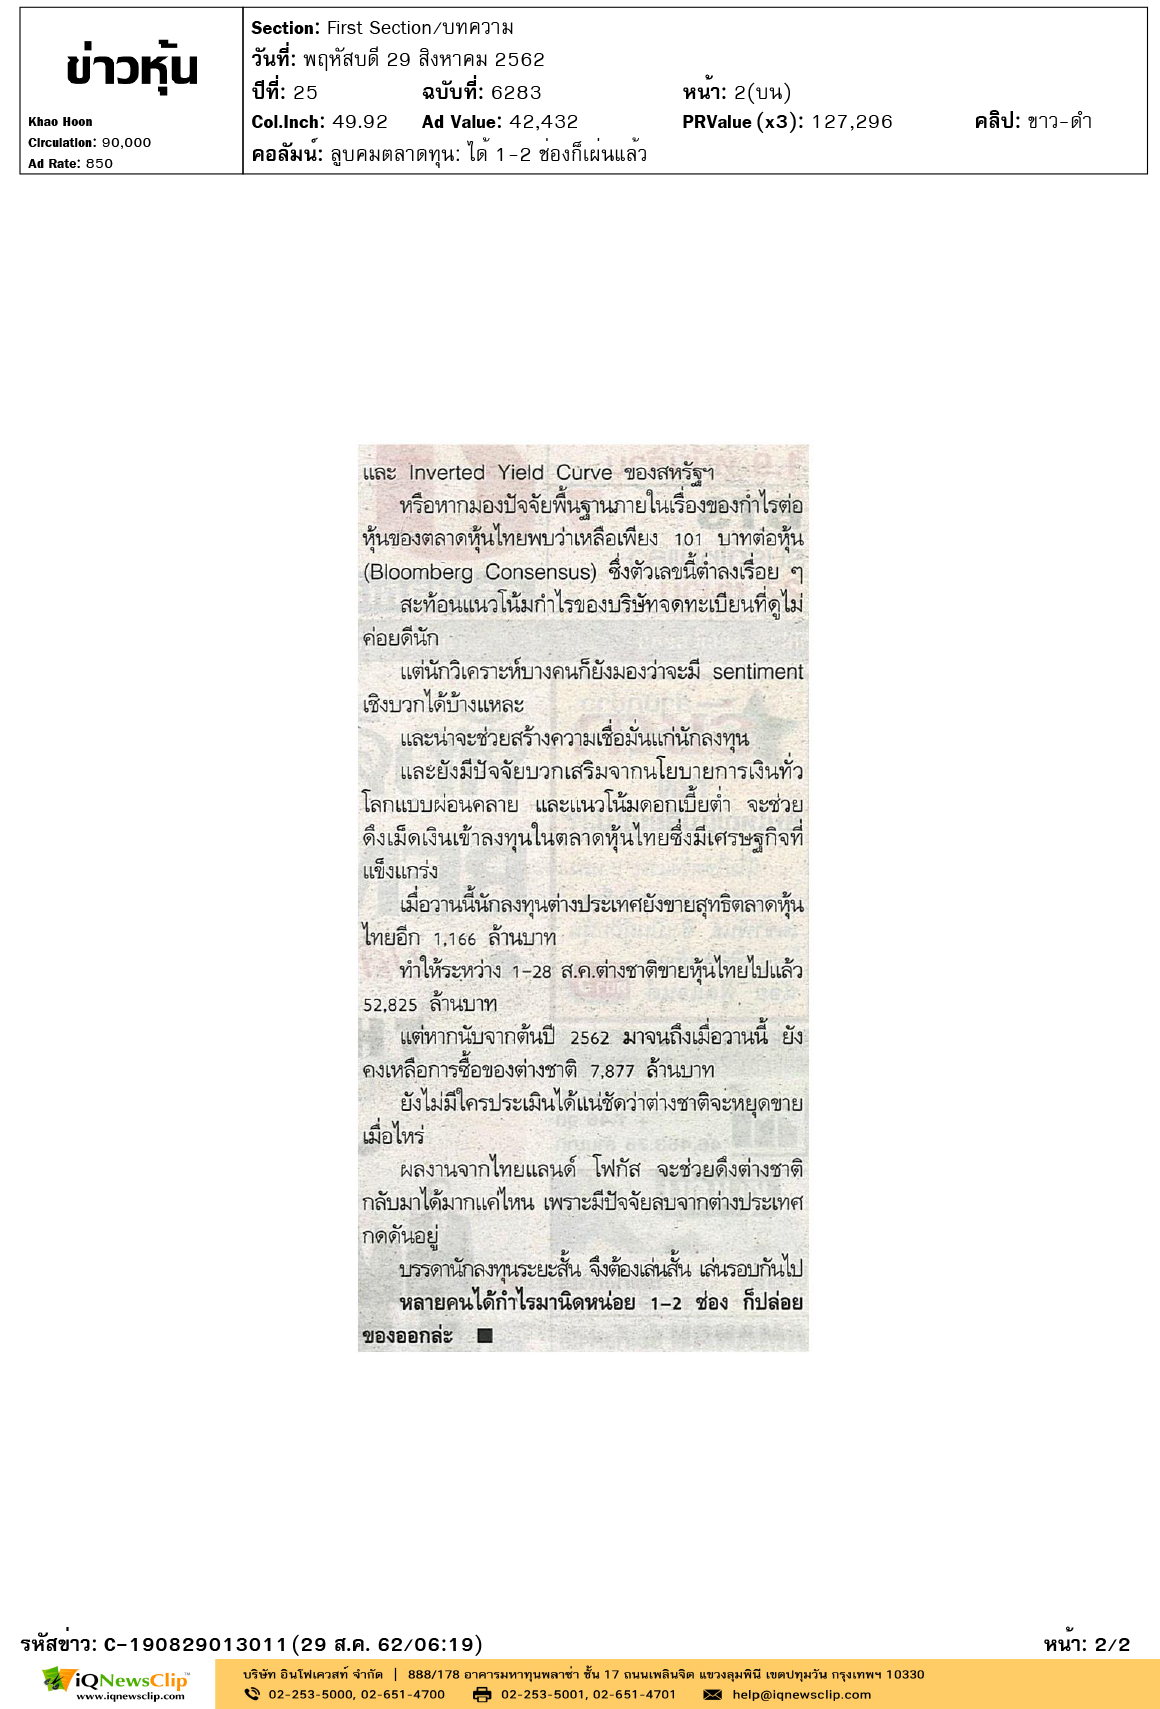 ข่าวหุ้น
Khao Hoon
Circulation: 90,000
Ad Rate: 850
Section: First Section/บทความ
วันที่: พฤหัสบดี 29 สิงหาคม 2562
ปีที่: 25 ฉบับที่: 6283 หน้า: 2(บน)
Col.Inch: 49.92 Ad Value: 42,432 PRValue (x3): 127,296 คลิป: ขาว-ดำ
คอลัมน์: ลูบคมตลาดทุน: ได้ 1-2 ช่องก็เผ่นแล้ว
และ Inverted Yield Curve ของสหรัฐฯ
หรือหากมองปัจจัยพื้นฐานภายในเรื่องของกำไรต่อ
หุ้นของตลาดหุ้นไทยพบว่าเหลือเพียง 101 บาทต่อหุ้น
(Bloomberg Consensus) ซึ่งตัวเลขนี้ต่ำลงเรื่อย ๆ
สะท้อนแนวโน้มกำไรของบริษัทจดทะเบียนที่ดูไม่
ค่อยดีนัก
แต่นักวิเคราะห์บางคนก็ยังมองว่าจะมี sentiment
เชิงบวกได้บ้างแหละ
และน่าจะช่วยสร้างความเชื่อมั่นแก่นักลงทุน
และยังมีปัจจัยบวกเสริมจากนโยบายการเงินทั่ว
โลกแบบผ่อนคลาย และแนวโน้มดอกเบี้ยต่ำ จะช่วย
ดึงเม็ดเงินเข้าลงทุนในตลาดหุ้นไทยซึ่งมีเศรษฐกิจที่
แข็งแกร่ง
เมื่อวานนี้นักลงทุนต่างประเทศยังขายสุทธิตลาดหุ้น
ไทยอีก 1,166 ล้านบาท
ทำให้ระหว่าง 1-28 ส.ค.ต่างชาติขายหุ้นไทยไปแล้ว
52,825 ล้านบาท
แต่หากนับจากต้นปี 2562 มาจนถึงเมื่อวานนี้ ยัง
คงเหลือการซื้อของต่างชาติ 7,877 ล้านบาท
ยังไม่มีใครประเมินได้แน่ชัดว่าต่างชาติจะหยุดขาย
เมื่อไหร่
ผลงานจากไทยแลนด์ โฟกัส จะช่วยดึงต่างชาติ
กลับมาได้มากแค่ไหน เพราะมีปัจจัยลบจากต่างประเทศ
กดดันอยู่
บรรดานักลงทุนระยะสั้น จึงต้องเล่นสั้น เล่นรอบกันไป
หลายคนได้กำไรมานิดหน่อย 1-2 ช่อง ก็ปล่อย
ของออกล่ะ
รหัสข่าว: C-190829013011 (29 ส.ค. 62/06:19) หน้า: 2/2
iQNewsClip™
www.iqnewsclip.com
บริษัท อินโฟเควสท์ จำกัด | 888/178 อาคารมหาทุนพลาซ่า ชั้น 17 ถนนเพลินจิต แขวงลุมพินี เขตปทุมวัน กรุงเทพฯ 10330
02-253-5000, 02-651-4700 02-253-5001, 02-651-4701 help@iqnewsclip.com